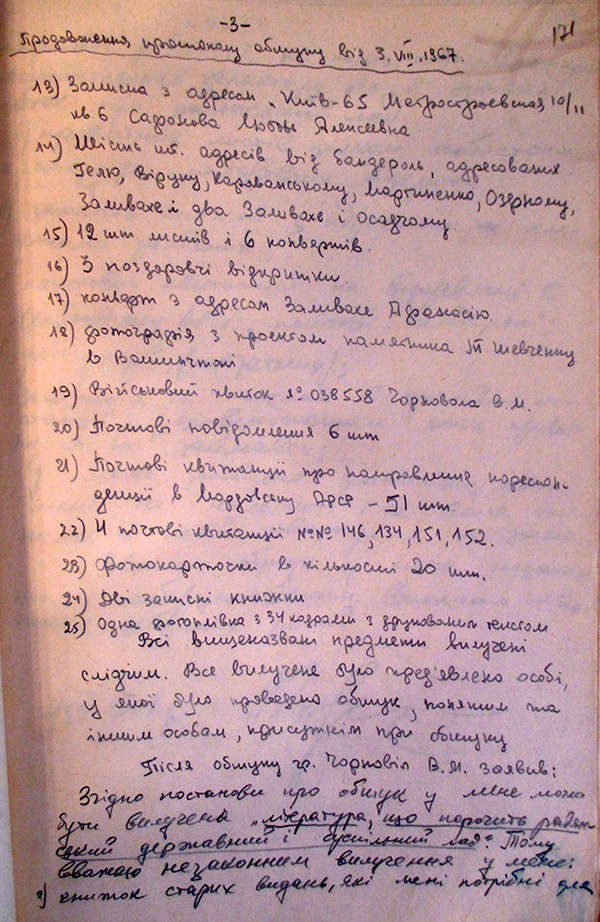 -3-
171
Продовження протоколу обшуку від 3.VIII.1967.
13) Записка з адресом „Київ-65 Метростроевская 10/11
кв 6 Сафонова Любовь Алексеевна
14) Шість шт. адресів від бандероль, адресованих
Гелю, Віруну, Караванському, Мартиненко, Озерному,
Заливахе і два Заливахе і Осадчому.
15) 12 шт листів і 6 конвертів.
16) 5 поздоровчі відкритки
17) конверт з адресом Заливахе Афанасію.
18) фотографія з проектом памятника Т Шевченку
в Вашингтоні
19) Військовий квиток № 038558 Чорновола В.М.
20) Почтові повідомлення 6 шт
21) Почтові квитанції про направлення кореспон-
денції в Мордовську АРСР – 51 шт.
22) 4 почтові квитанції №№ 146, 134, 151, 152.
23) Фотокарточки в кількості 20 шт.
24) Дві записні книжки
25) Одна фотоплівка з 34 кадрами з друкованим текстом.
Всі вищеназвані предмети вилучені
слідчим. Все вилучене було пред'явлено особі,
у якої було проведено обшук, понятим та
іншим особам, присутнім при обшуку
Після обшуку гр. Чорновіл В.М. заявив:
Згідно постанови про обшук у мене може
бути вилучена „література, що порочить радян-
ський державний і суспільний лад". Тому
вважаю незаконним вилучення у мене:
книжок старих видань, які мені потрібні для